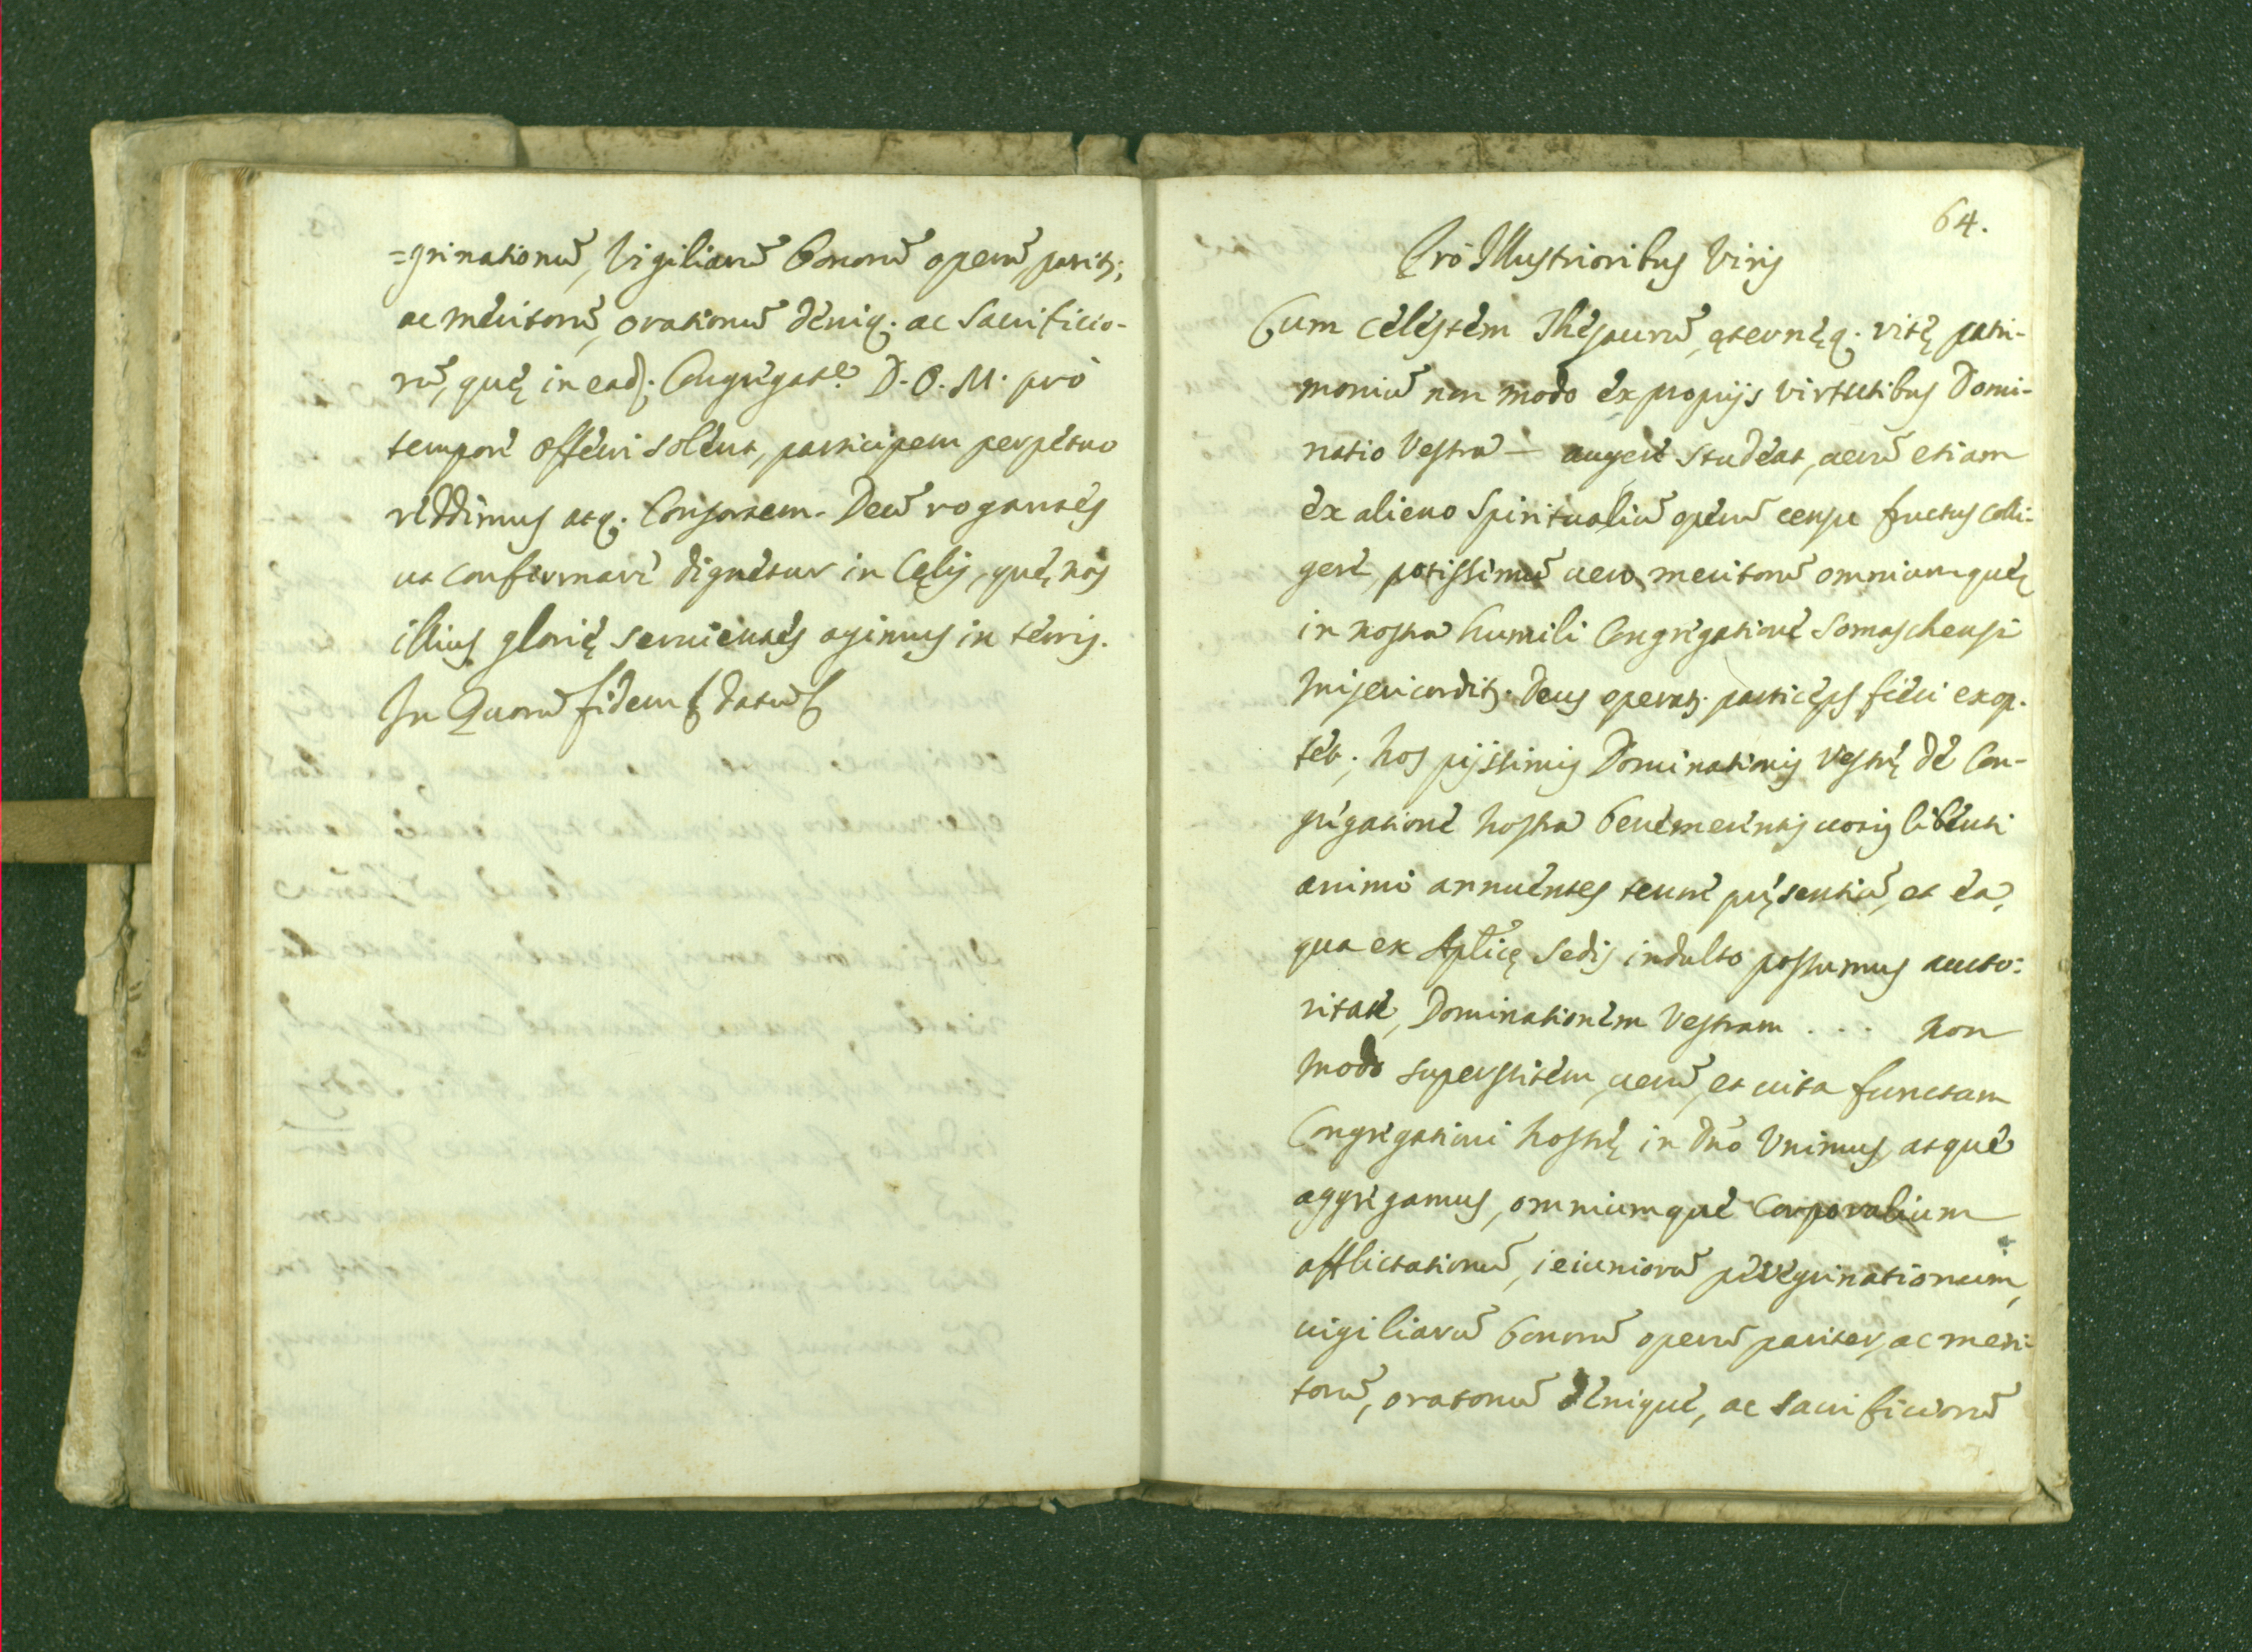 =grinationū, Vigiliarū bonorū operū, parit;
ac meritorū, orationū deniq. ac Sacrificio-
rū, quę in ead. Congregat.e D. O. M. pro
tempore offerri solent, participem perpetuo
reddimus atq. Consortem. Deū rogantes
ut confirmare dignetur in Cęlis, quę nos
illius glorię seruientes agimus in terris.
In Quorū fidem & datū
64.
Pro Illustrioribus Viris
Cum celestem Thesaurū, ęternęq. vitę patri-
moniū non modo ex proprijs virtutibus Domi-
natio Vestra — augere studeat, uerū etiam
ex alieno Spiritualiū operū censu fructus colli-
gere, potissimū uero meritorū omnium quę
in nostra humili Congregatione Somaschensi
misericordit. Deus operat. particeps fieri exop.
tet; nos pijssimis Dominationis Vestrę de Con-
gregatione nostra benemerentis uotis libenti
animo annuentes tenore pręsentiū, et ea,
qua ex Aplicę Sedis indulto possumus aucto-
ritate, Dominationem Vestram . . . non
modo superstitem, uerū, et uita functam
Congregationi nostrę in Dño Vnimus, atque
aggregamus, omniumque Corporalium
afflictationū, ieiuniorū peregrinationum,
uigiliarū bonorū operū pariter, ac meri-
torū, oratonū denique, ac sacrificiorū